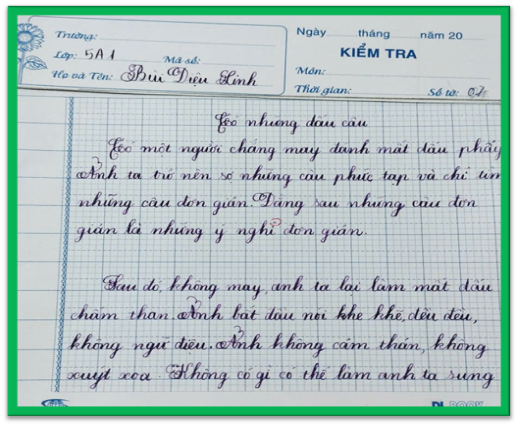 Trường:
Ngày tháng năm 20
Lớp: 5A1 Mã số:
KIỂM TRA
Họ và Tên: Bùi Diệu Linh
Môn:
Thời gian: Số tờ: 01
Có những dấu câu
Có một người chẳng may đánh mất dấu phẩy
Anh ta trở nên sợ những câu phức tạp và chỉ tìm
những câu đơn giản. Đằng sau những câu đơn
giản là những ý nghĩ đơn giản.
Sau đó, không may, anh ta lại làm mất dấu
chấm than. Anh bắt đầu nói khe khẽ, đều đều,
không ngữ điệu. Anh không cảm thán, không
xuýt xoa. Không có gì có thể làm anh ta sung